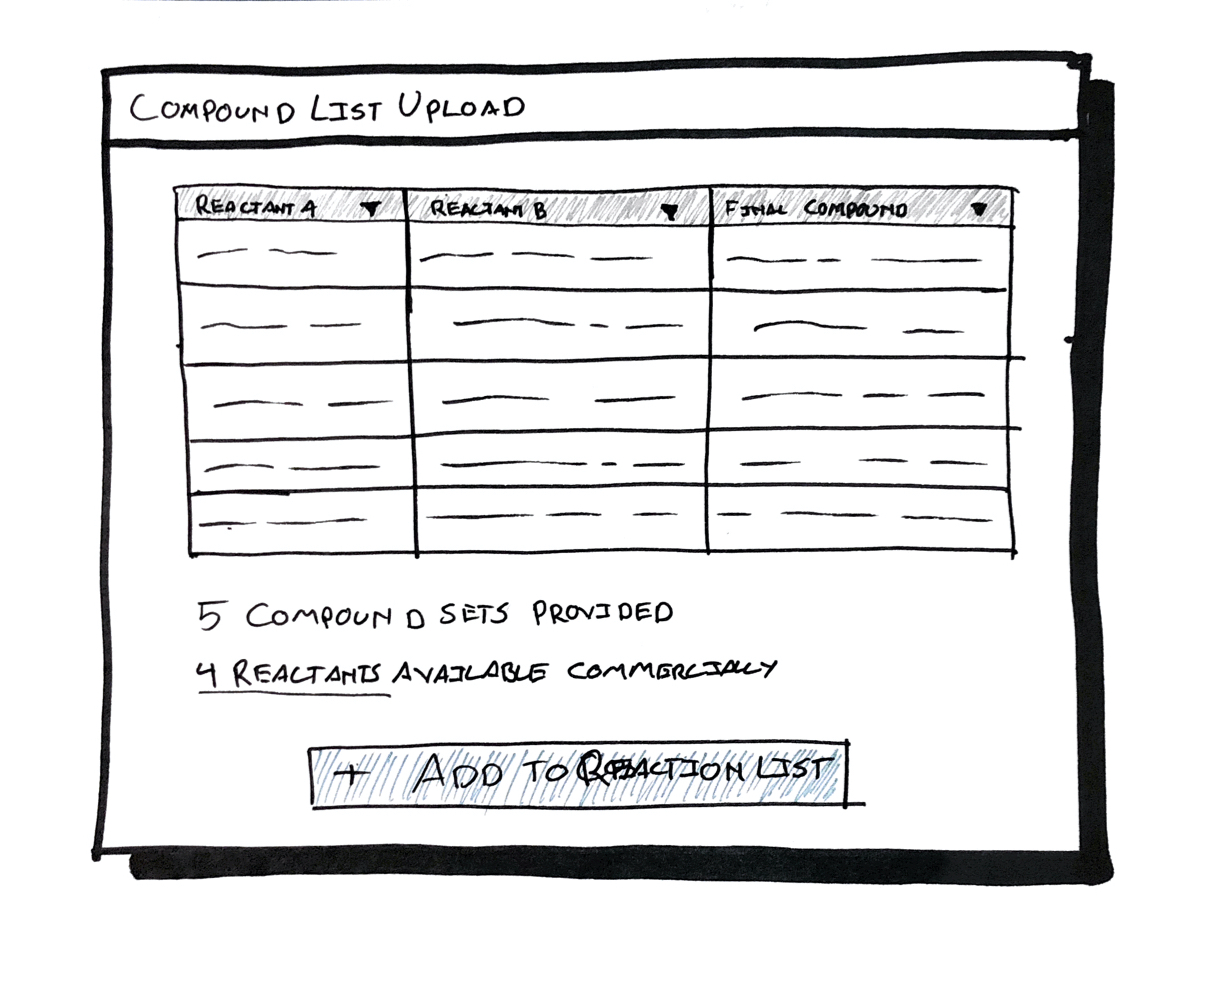 COMPOUND LIST UPLOAD
REACTANT A ▼ REACTANT B ▼ FINAL COMPOUND ▼
5 COMPOUND SETS PROVIDED
4 REACTANTS AVAILABLE COMMERCIALLY
+ ADD TO REACTION LIST